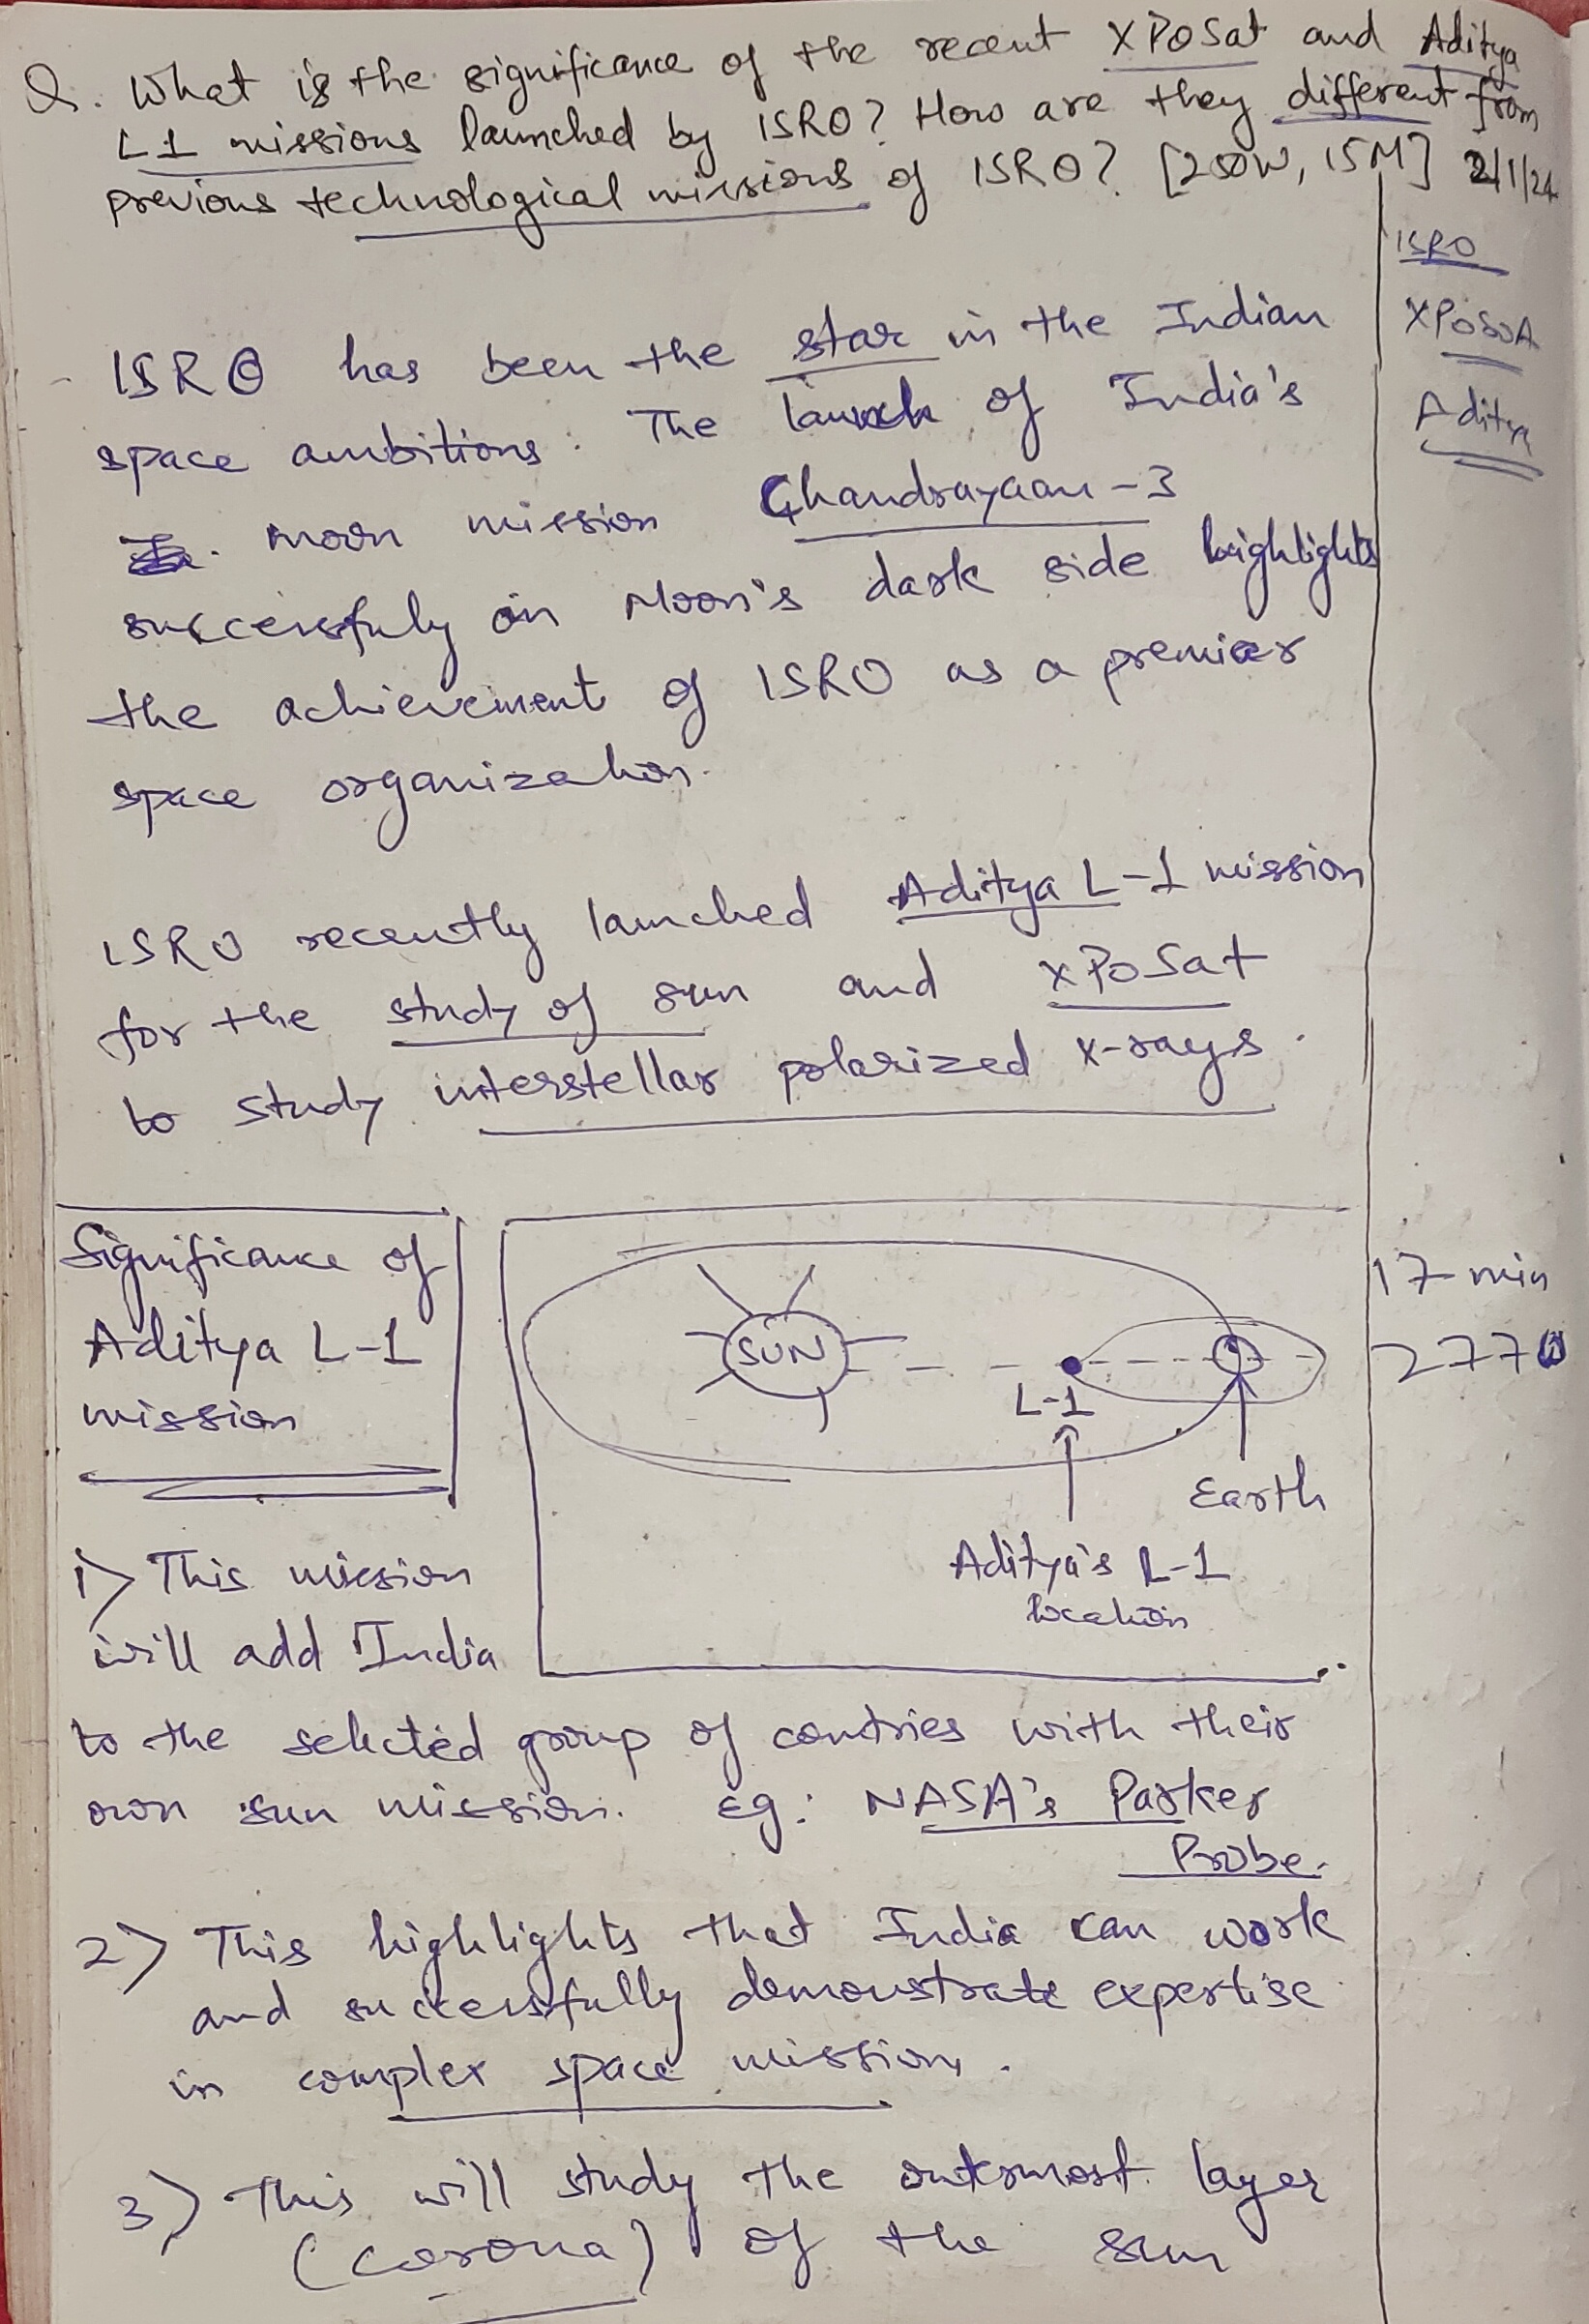 Q. What is the significance of the recent XPoSat and Aditya
L1 missions launched by ISRO? How are they different from
previous technological missions of ISRO? [250W, 15M] 2/1/24
ISRO
XPoSA
Aditya
ISRO has been the star in the Indian
space ambitions. The launch of India's
moon mission Chandrayaan-3
successfuly on Moon's dark side highlights
the achievement of ISRO as a premier
space organization.
ISRO recently launched Aditya L-1 mission
for the study of sun and XPoSat
to study interstellar polarized x-rays.
Significance of
Aditya L-1
mission
SUN
L-1
Earth
Aditya's L-1
location
17 min
277
1) This mission
will add India
to the selected group of contries with their
own sun mission. Eg: NASA's Parker
Probe.
2) This highlights that India can work
and successfully demonstrate expertise
in complex space mission.
3) This will study the outermost layer
(corona) of the sun